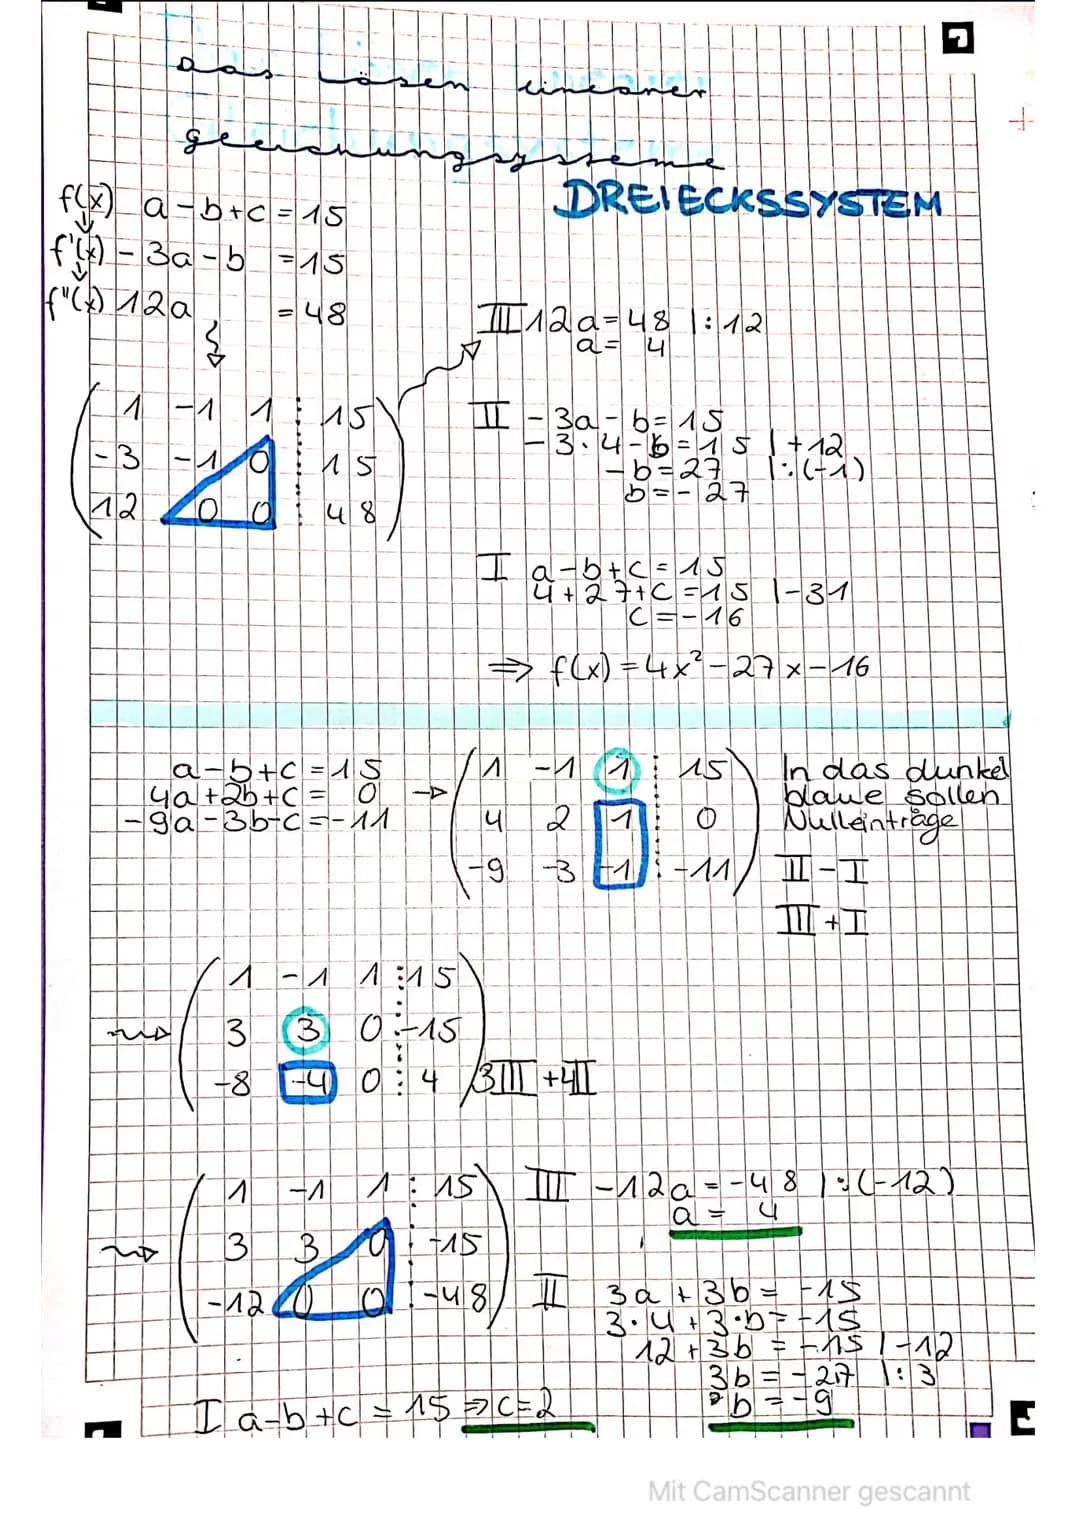 Das Lösen linearer
Gleichungssysteme
DREIECKSSYSTEM
f(x) a-b+c=15
f'(x) -3a-b =15
f''(x) 12a =48
1 -1 1 15
-3 -1 0 15
12 0 0 48
III 12a=48 |:12
a= 4
II -3a-b=15
-3·4-b=15 |+12
-b=27 |:(-1)
b=-27
I a-b+c=15
4+27+c=15 |-31
c=-16
⇒ f(x)=4x²-27x-16
a-b+c=15
4a+2b+c= 0
-9a-3b-c=-11
1 -1 1 15
4 2 1 0
-9 -3 -1 -11
In das dunkel
blaue sollen
Nulleinträge
II-I
III+I
1 -1 1 15
3 3 0 -15
-8 -4 0 4 3III +4II
1 -1 1 15
3 3 0 -15
-12 0 0 -48
III -12a=-48 |:(-12)
a= 4
II 3a+3b=-15
3·4+3·b=-15
12+3b=-15 |-12
3b=-27 |:3
b=-9
I a-b+c=15⇒c=2
Mit CamScanner gescannt